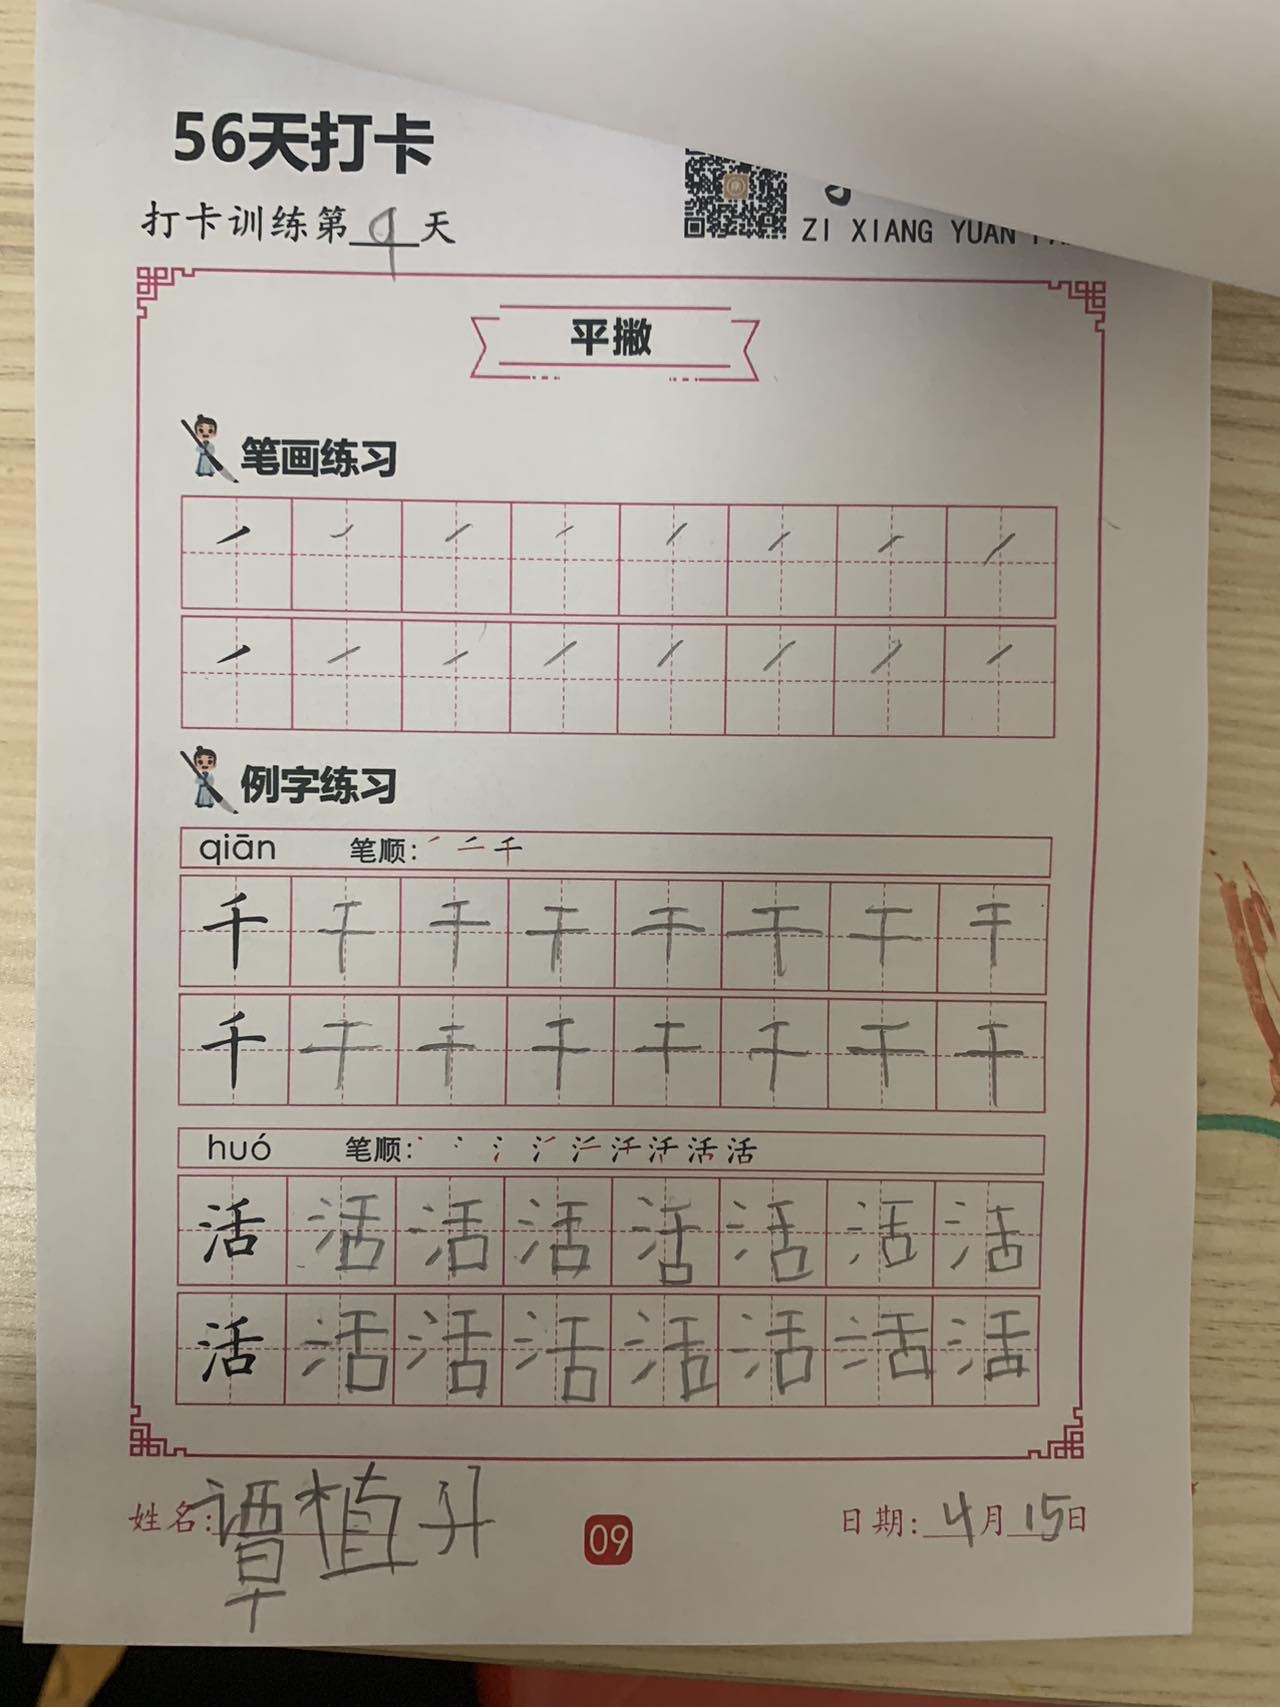 56天打卡
打卡训练第9天
ZI XIANG YUAN
平撇
笔画练习
例字练习
qiān 笔顺:
千 千 千 千 千 千 千 千
千 千 千 千 千 千 千 千
huó 笔顺:
活 活 活 活 活 活 活 活
活 活 活 活 活 活 活 活
姓名:谭植升
09
日期:4月15日